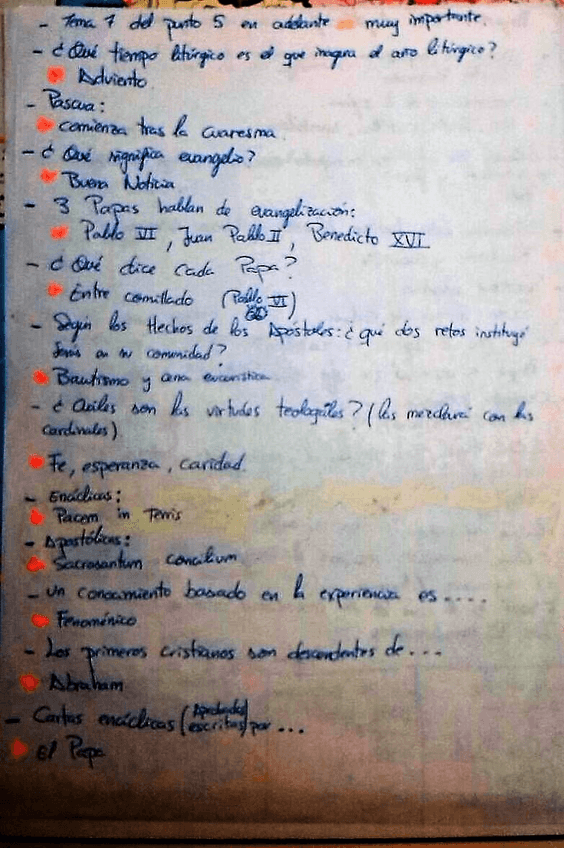 - Tema 7 del punto 5 en adelante muy importante.
- ¿Qué tiempo litúrgico es el que inagura el año litúrgico?
Adviento
- Pascua:
comienza tras la cuaresma.
- ¿Qué significa evangelio?
Buena Noticia
- 3 Papas hablan de evangelización:
Pablo VI, Juan Pablo II, Benedicto XVI
- ¿Qué dice cada Papa?
Entre comillado (Pablo VI)
- Según los Hechos de los Apóstoles: ¿qué dos retos instituyó
Jesús en su comunidad?
Bautismo y cena eucarística
- ¿Cuáles son las virtudes teologales? (las mezclará con las
cardinales)
Fe, esperanza, caridad.
- Encíclicas:
Pacem in Terris
- Apostólicas:
Sacrosantum concilium
- Un conocimiento basado en la experiencia es ....
Fenoménico
- Los primeros cristianos son descendentes de ...
Abraham
- Cartas encíclicas (Aprobadas/escritas) por ...
El Papa